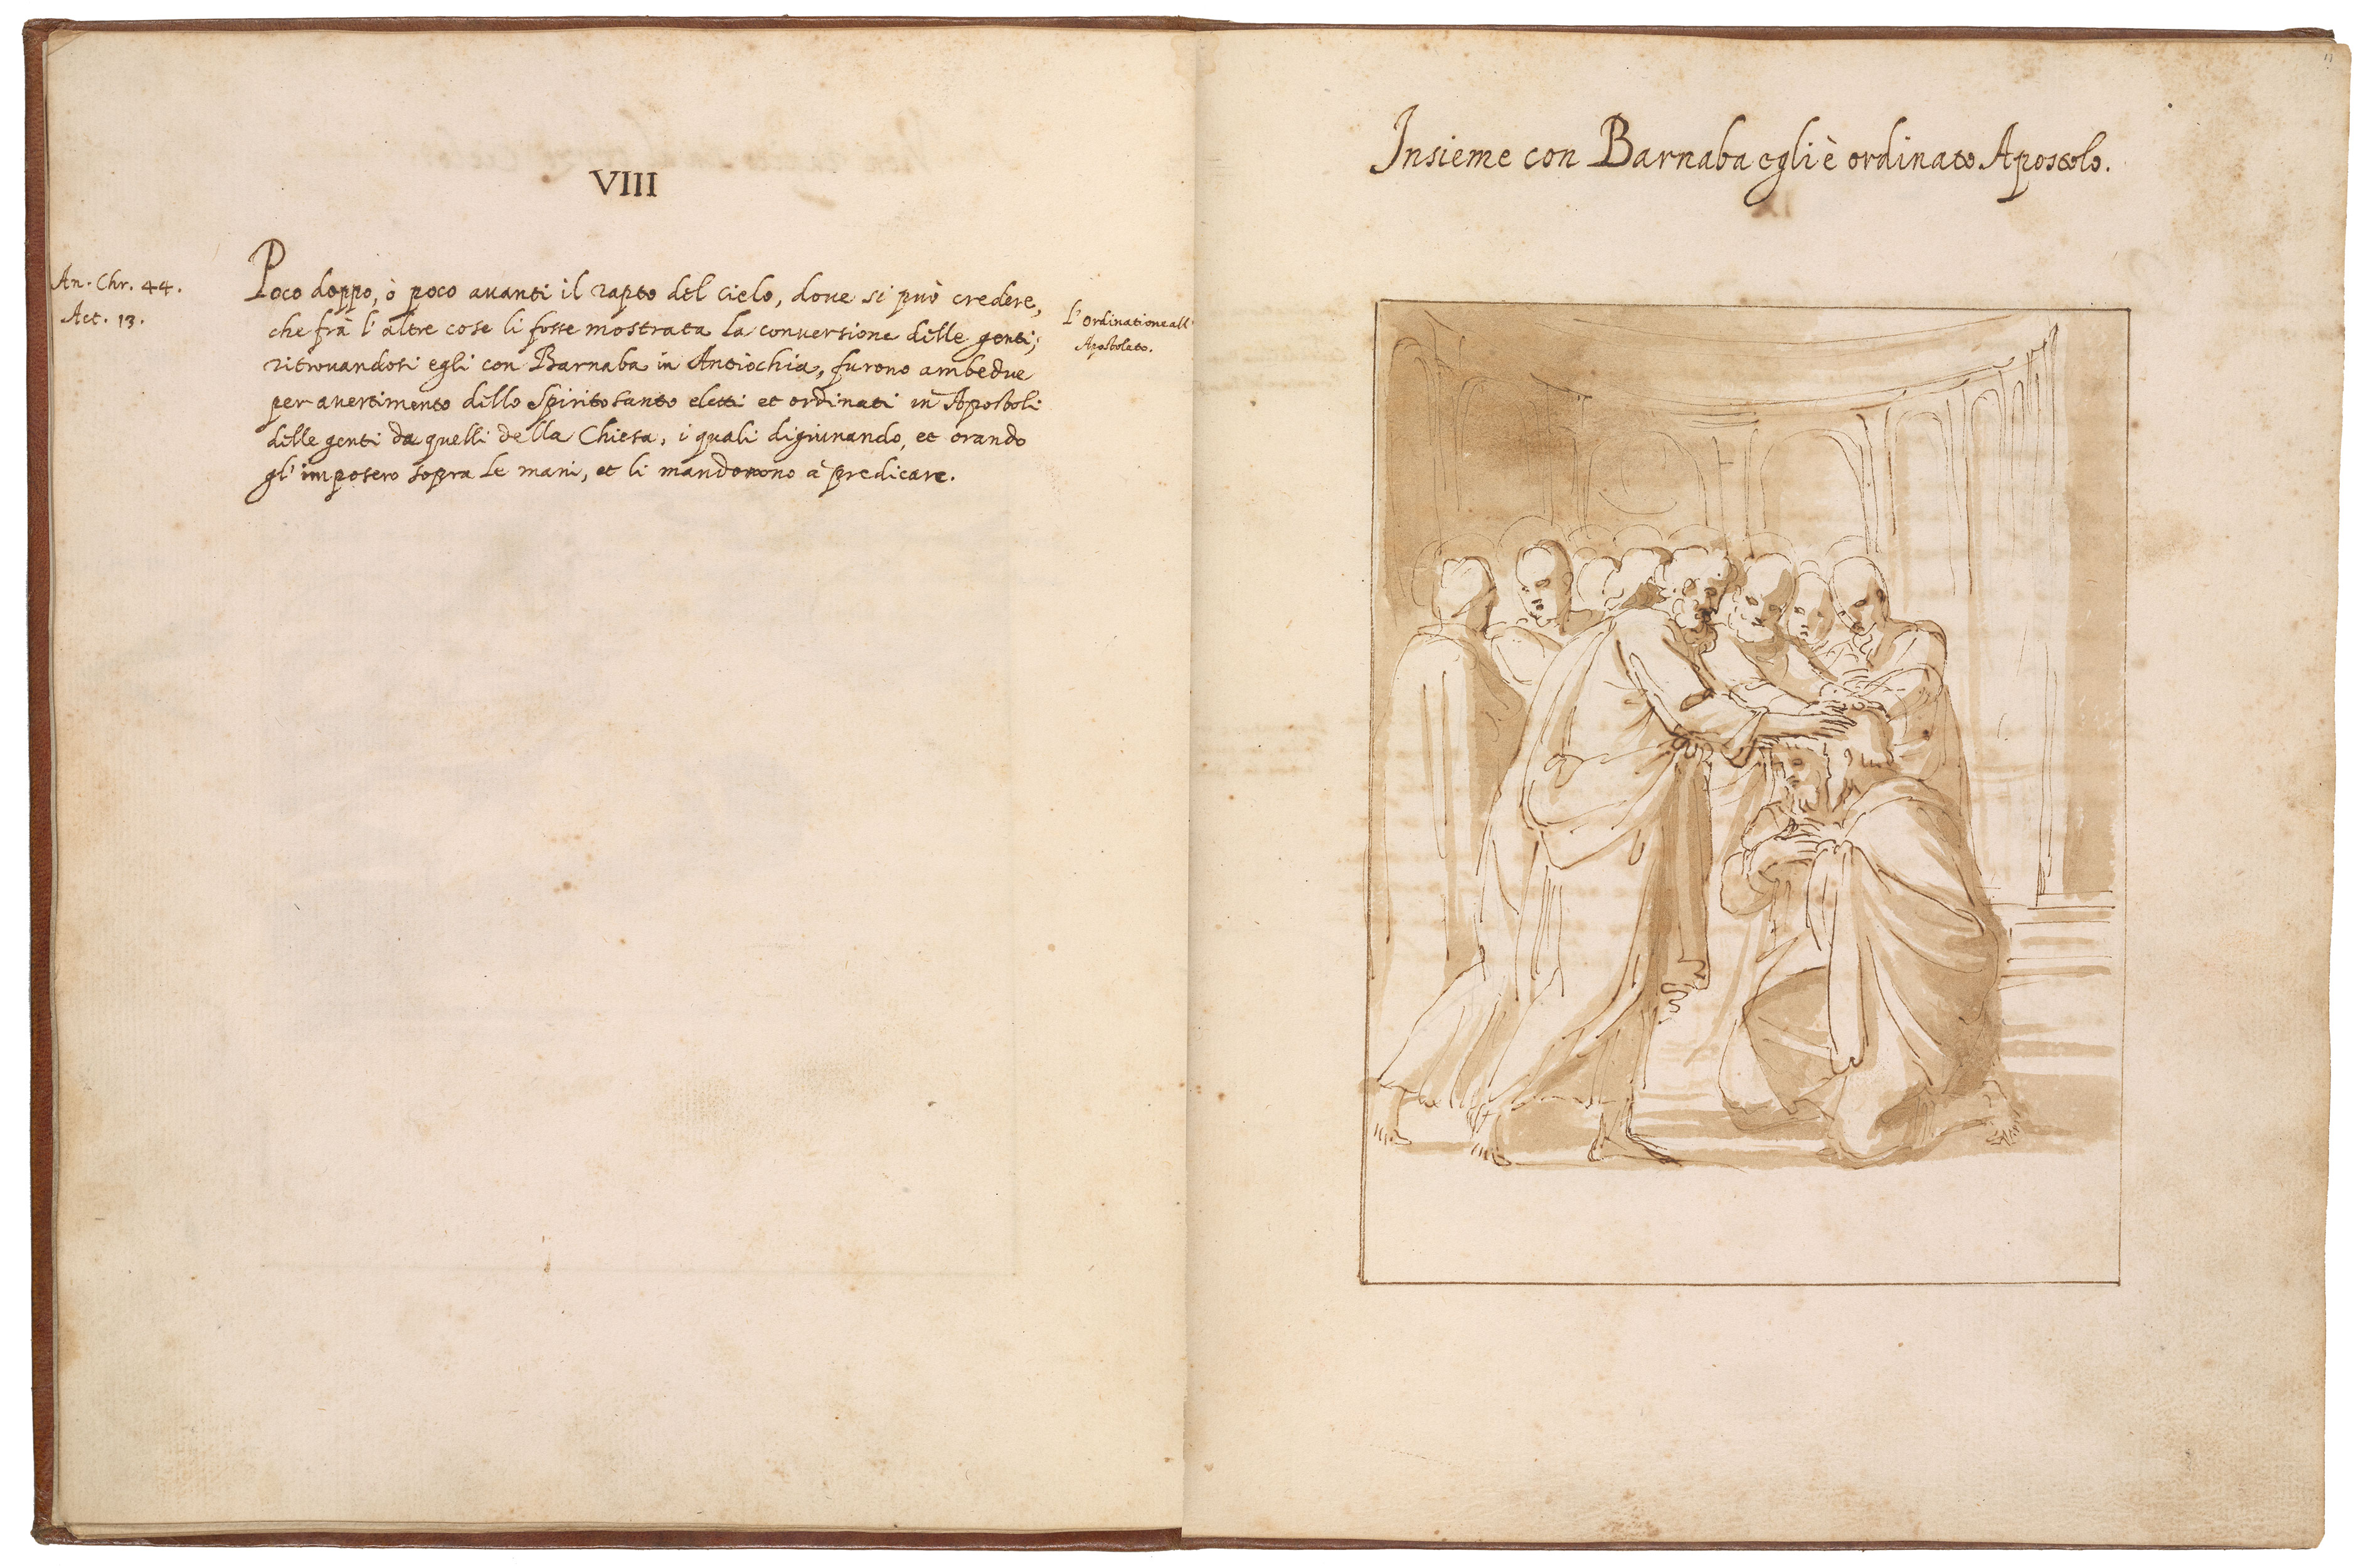 VIII
An. Chr. 44.
Act. 13.
Poco doppo, ò poco auanti il rapto del cielo, doue si può credere,
che frà l'altre cose li fosse mostrata la conuersione delle genti;
ritrouandosi egli con Barnaba in Antiochia, furono ambedue
per auertimento dello Spirito santo eletti et ordinati in Apostoli
delle genti da quelli della Chiesa, i quali digiunando, et orando
gl'imposero sopra le mani, et li mandorono à predicare.
L'ordinatione all'
Apostolato.
Insieme con Barnaba egli è ordinato Apostolo.